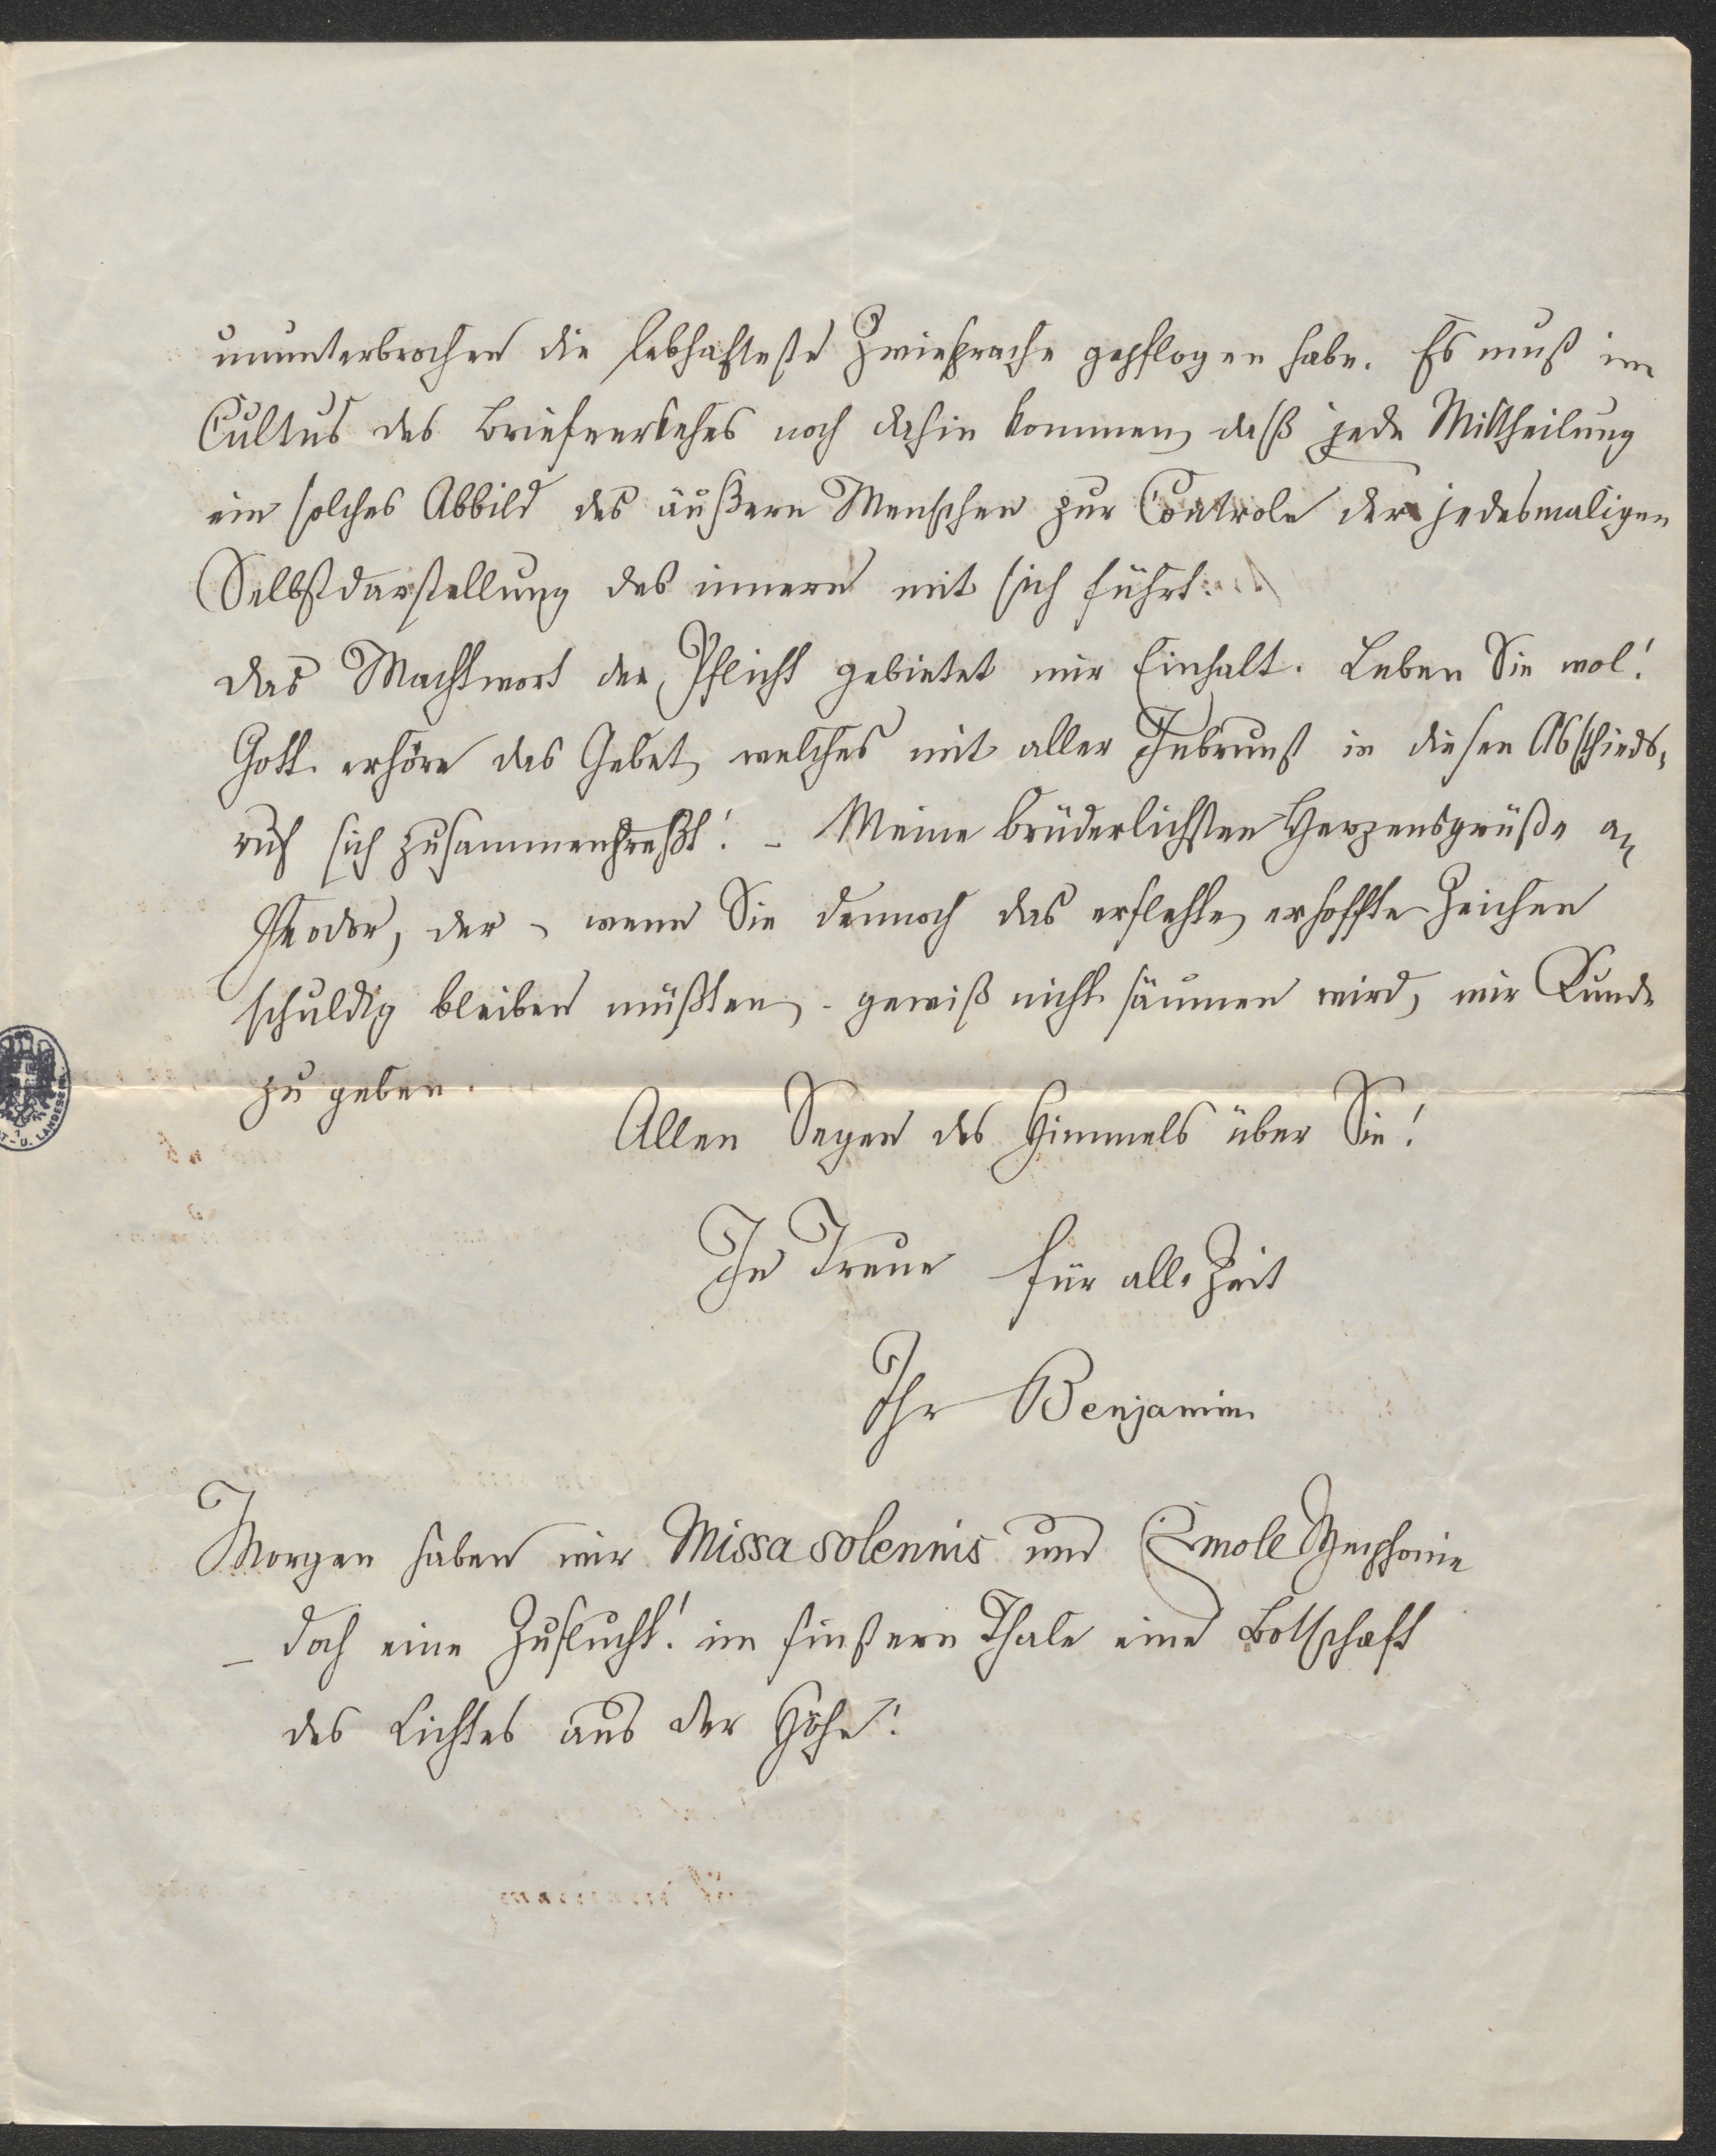 ununterbrochen die lebhafteste Zwiesprache gepflogen habe. Es muß im
Cultus des Briefverkehrs noch dahin kommen, daß jede Mittheilung
ein solches Abbild des äußern Menschen zur Controle der jedesmaligen
Selbstdarstellung des innern mit sich führt.
Das Machtwort der Pflicht gebietet mir Einhalt. Leben Sie wol!
Gott erhöre das Gebet, welches mit aller Inbrunst in diesen Abschieds-
ruf sich zusammenpreßt! – Meine brüderlichsten Herzensgrüße an
Feodor, der – wenn Sie dennoch das erflehte, erhoffte Zeichen
schuldig bleiben müßten, – gewiß nicht säumen wird, mir Kunde
zu geben.
Allen Segen des Himmels über Sie!
In Treue für alle Zeit
Ihr Benjamin.
Morgen haben wir Missa solennis und Cmoll Symphonie
– doch eine Zuflucht! im finstern Thale eine Botschaft
des Lichtes aus der Höhe!